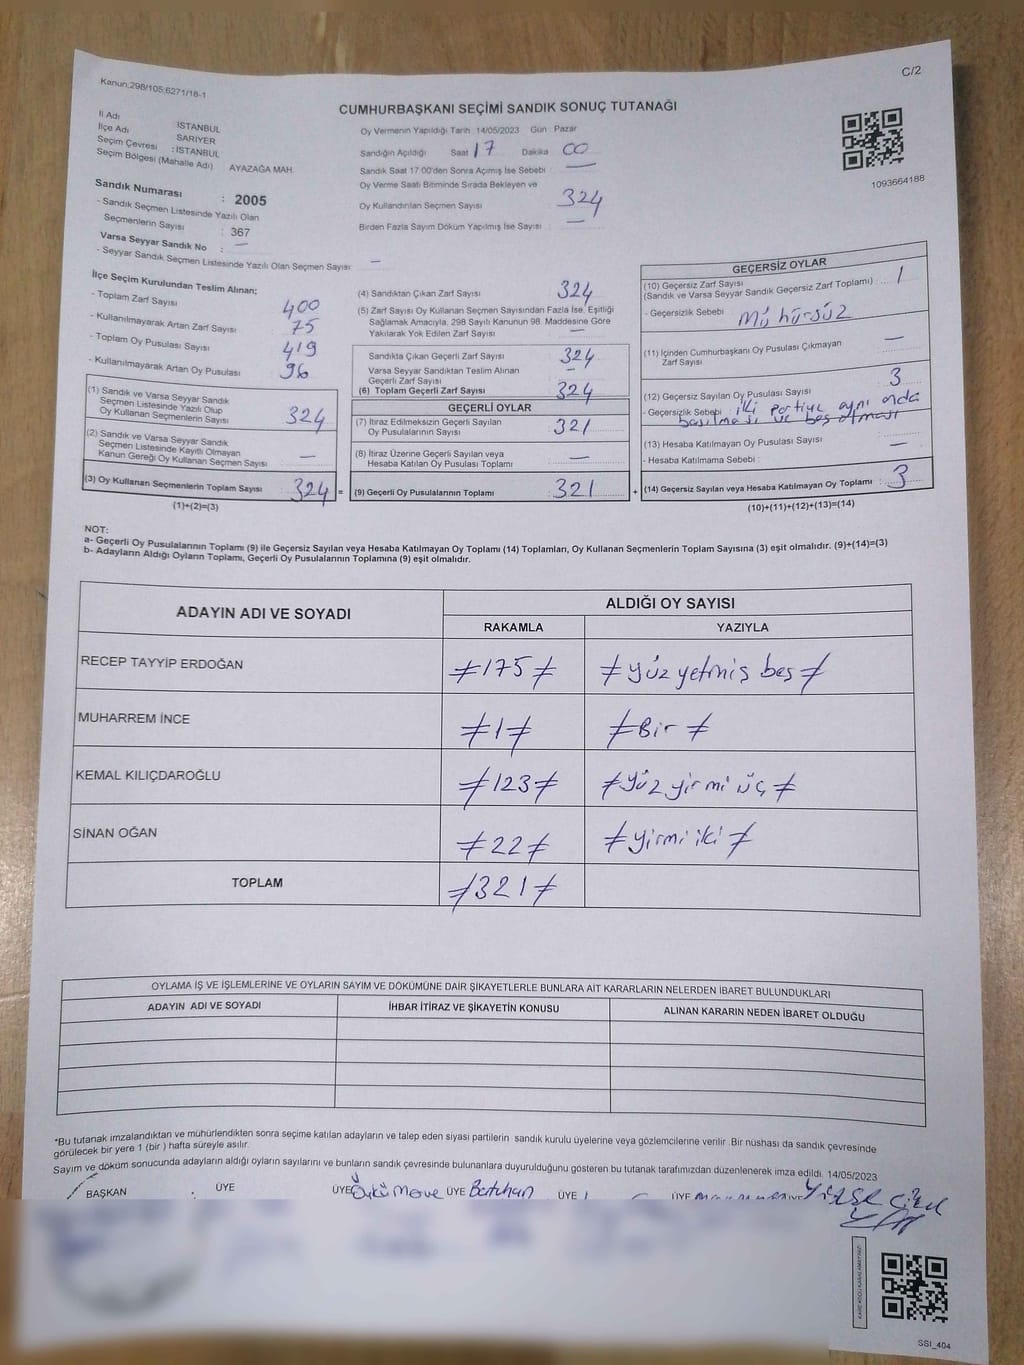 Kanun:298/105;6271/18-1
C/2
CUMHURBAŞKANI SEÇİMİ SANDIK SONUÇ TUTANAĞI
İl Adı İSTANBUL
İlçe Adı SARIYER
Seçim Çevresi : İSTANBUL
Seçim Bölgesi (Mahalle Adı) AYAZAĞA MAH.
Oy Vermenin Yapıldığı Tarih 14/05/2023 Gün : Pazar
Sandığın Açıldığı Saat 17 Dakika 00
Sandık Saat 17.00'den Sonra Açımış İse Sebebi : —
Oy Verme Saati Bitiminde Sırada Bekleyen ve
Oy Kullandırılan Seçmen Sayısı 324
Birden Fazla Sayım Döküm Yapılmış İse Sayısı : —
1093664188
Sandık Numarası : 2005
- Sandık Seçmen Listesinde Yazılı Olan
Seçmenlerin Sayısı : 367
Varsa Seyyar Sandık No : —
- Seyyar Sandık Seçmen Listesinde Yazılı Olan Seçmen Sayısı: —
İlçe Seçim Kurulundan Teslim Alınan;
- Toplam Zarf Sayısı 400
- Kullanılmayarak Artan Zarf Sayısı : 75
- Toplam Oy Pusulası Sayısı 419
- Kullanılmayarak Artan Oy Pusulası 96
(1) Sandık ve Varsa Seyyar Sandık
Seçmen Listesinde Yazılı Olup
Oy Kullanan Seçmenlerin Sayısı : 324
(2) Sandık ve Varsa Seyyar Sandık
Seçmen Listesinde Kayıtlı Olmayan
Kanun Gereği Oy Kullanan Seçmen Sayısı : —
(3) Oy Kullanan Seçmenlerin Toplam Sayısı : 324 =
(1)+(2)=(3)
(4) Sandıktan Çıkan Zarf Sayısı : 324
(5) Zarf Sayısı Oy Kullanan Seçmen Sayısından Fazla İse, Eşitliği
Sağlamak Amacıyla, 298 Sayılı Kanunun 98. Maddesine Göre
Yakılarak Yok Edilen Zarf Sayısı : —
Sandıkta Çıkan Geçerli Zarf Sayısı : 324
Varsa Seyyar Sandıktan Teslim Alınan
Geçerli Zarf Sayısı : —
(6) Toplam Geçerli Zarf Sayısı : 324
GEÇERLİ OYLAR
(7) İtiraz Edilmeksizin Geçerli Sayılan
Oy Pusulalarının Sayısı : 321
(8) İtiraz Üzerine Geçerli Sayılan veya
Hesaba Katılan Oy Pusulası Toplamı : —
(9) Geçerli Oy Pusulalarının Toplamı : 321 +
GEÇERSİZ OYLAR
(10) Geçersiz Zarf Sayısı
(Sandık ve Varsa Seyyar Sandık Geçersiz Zarf Toplamı) : 1
- Geçersizlik Sebebi : Mühürsüz
(11) İçinden Cumhurbaşkanı Oy Pusulası Çıkmayan
Zarf Sayısı : —
(12) Geçersiz Sayılan Oy Pusulası Sayısı : 3
- Geçersizlik Sebebi : iki partiye aynı anda
basılması ve boş olması
(13) Hesaba Katılmayan Oy Pusulası Sayısı : —
- Hesaba Katılmama Sebebi :
(14) Geçersiz Sayılan veya Hesaba Katılmayan Oy Toplamı : 3
(10)+(11)+(12)+(13)=(14)
NOT:
a- Geçerli Oy Pusulalarının Toplamı (9) ile Geçersiz Sayılan veya Hesaba Katılmayan Oy Toplamı (14) Toplamları, Oy Kullanan Seçmenlerin Toplam Sayısına (3) eşit olmalıdır. (9)+(14)=(3)
b- Adayların Aldığı Oyların Toplamı, Geçerli Oy Pusulalarının Toplamına (9) eşit olmalıdır.
ADAYIN ADI VE SOYADI ALDIĞI OY SAYISI
RAKAMLA YAZIYLA
RECEP TAYYİP ERDOĞAN ≠175≠ ≠yüz yetmiş beş≠
MUHARREM İNCE ≠1≠ ≠Bir≠
KEMAL KILIÇDAROĞLU ≠123≠ ≠yüz yirmi üç≠
SİNAN OĞAN ≠22≠ ≠yirmi iki≠
TOPLAM ≠321≠
OYLAMA İŞ VE İŞLEMLERİNE VE OYLARIN SAYIM VE DÖKÜMÜNE DAİR ŞİKAYETLERLE BUNLARA AİT KARARLARIN NELERDEN İBARET BULUNDUKLARI
ADAYIN ADI VE SOYADI İHBAR İTİRAZ VE ŞİKAYETİN KONUSU ALINAN KARARIN NEDEN İBARET OLDUĞU
*Bu tutanak imzalandıktan ve mühürlendikten sonra seçime katılan adayların ve talep eden siyasi partilerin sandık kurulu üyelerine veya gözlemcilerine verilir. Bir nüshası da sandık çevresinde
görülecek bir yere 1 (bir ) hafta süreyle asılır.
Sayım ve döküm sonucunda adayların aldığı oyların sayılarını ve bunların sandık çevresinde bulunanlara duyurulduğunu gösteren bu tutanak tarafımızdan düzenlenerek imza edildi. 14/05/2023
BAŞKAN ÜYE ÜYE ÜYE Batuhan ÜYE ÜYE
SSI_404